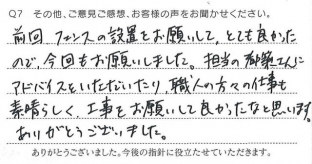 Q7 その他、ご意見ご感想、お客様の声をお聞かせください。
前回、フェンスの設置をお願いして、とても良かった
ので、今回もお願いしました。担当の都築さんに
アドバイスをいただいたり、職人の方々の仕事も
素晴らしく、工事をお願いして良かったなと思います。
ありがとうございました。
ありがとうございました。今後の指針に役立たせていただきます。